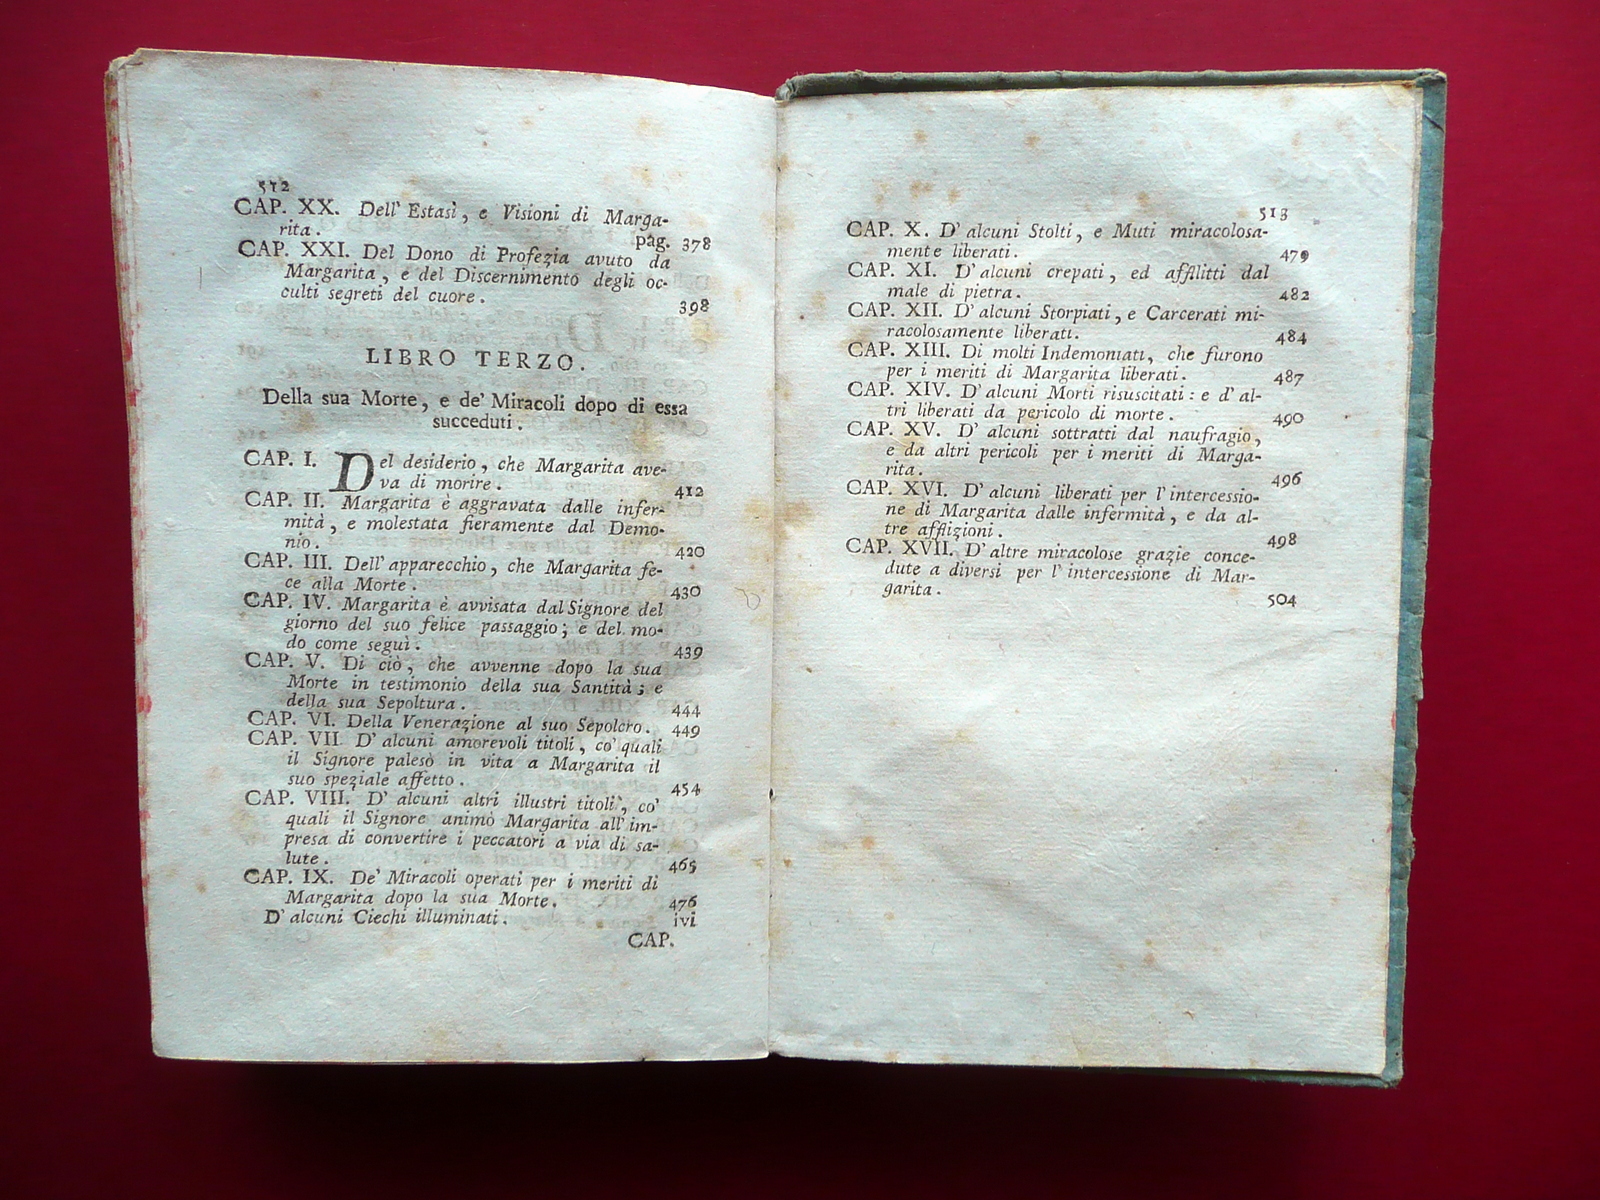 512
CAP. XX. Dell' Estasi, e Visioni di Marga-
rita. pag. 378
CAP. XXI. Del Dono di Profezia avuto da
Margarita, e del Discernimento degli oc-
culti segreti del cuore. 398
LIBRO TERZO.
Della sua Morte, e de' Miracoli dopo di essa
succeduti.
CAP. I. Del desiderio, che Margarita ave-
va di morire. 412
CAP. II. Margarita è aggravata dalle infer-
mità, e molestata fieramente dal Demo-
nio. 420
CAP. III. Dell' apparecchio, che Margarita fe-
ce alla Morte. 430
CAP. IV. Margarita è avvisata dal Signore del
giorno del suo felice passaggio; e del mo-
do come seguì. 439
CAP. V. Di ciò, che avvenne dopo la sua
Morte in testimonio della sua Santità; e
della sua Sepoltura. 444
CAP. VI. Della Venerazione al suo Sepolcro. 449
CAP. VII. D' alcuni amorevoli titoli, co' quali
il Signore palesò in vita a Margarita il
suo speziale affetto. 454
CAP. VIII. D' alcuni altri illustri titoli, co'
quali il Signore animò Margarita all' im-
presa di convertire i peccatori a via di sa-
lute. 465
CAP. IX. De' Miracoli operati per i meriti di
Margarita dopo la sua Morte. 476
D' alcuni Ciechi illuminati. ivi
CAP.
513
CAP. X. D' alcuni Stolti, e Muti miracolosa-
mente liberati. 479
CAP. XI. D' alcuni crepati, ed afflitti dal
male di pietra. 482
CAP. XII. D' alcuni Storpiati, e Carcerati mi-
racolosamente liberati. 484
CAP. XIII. Di molti Indemoniati, che furono
per i meriti di Margarita liberati. 487
CAP. XIV. D' alcuni Morti risuscitati: e d' al-
tri liberati da pericolo di morte. 490
CAP. XV. D' alcuni sottratti dal naufragio,
e da altri pericoli per i meriti di Marga-
rita. 496
CAP. XVI. D' alcuni liberati per l' intercessio-
ne di Margarita dalle infermità, e da al-
tre afflizioni. 498
CAP. XVII. D' altre miracolose grazie conce-
dute a diversi per l' intercessione di Mar-
garita. 504